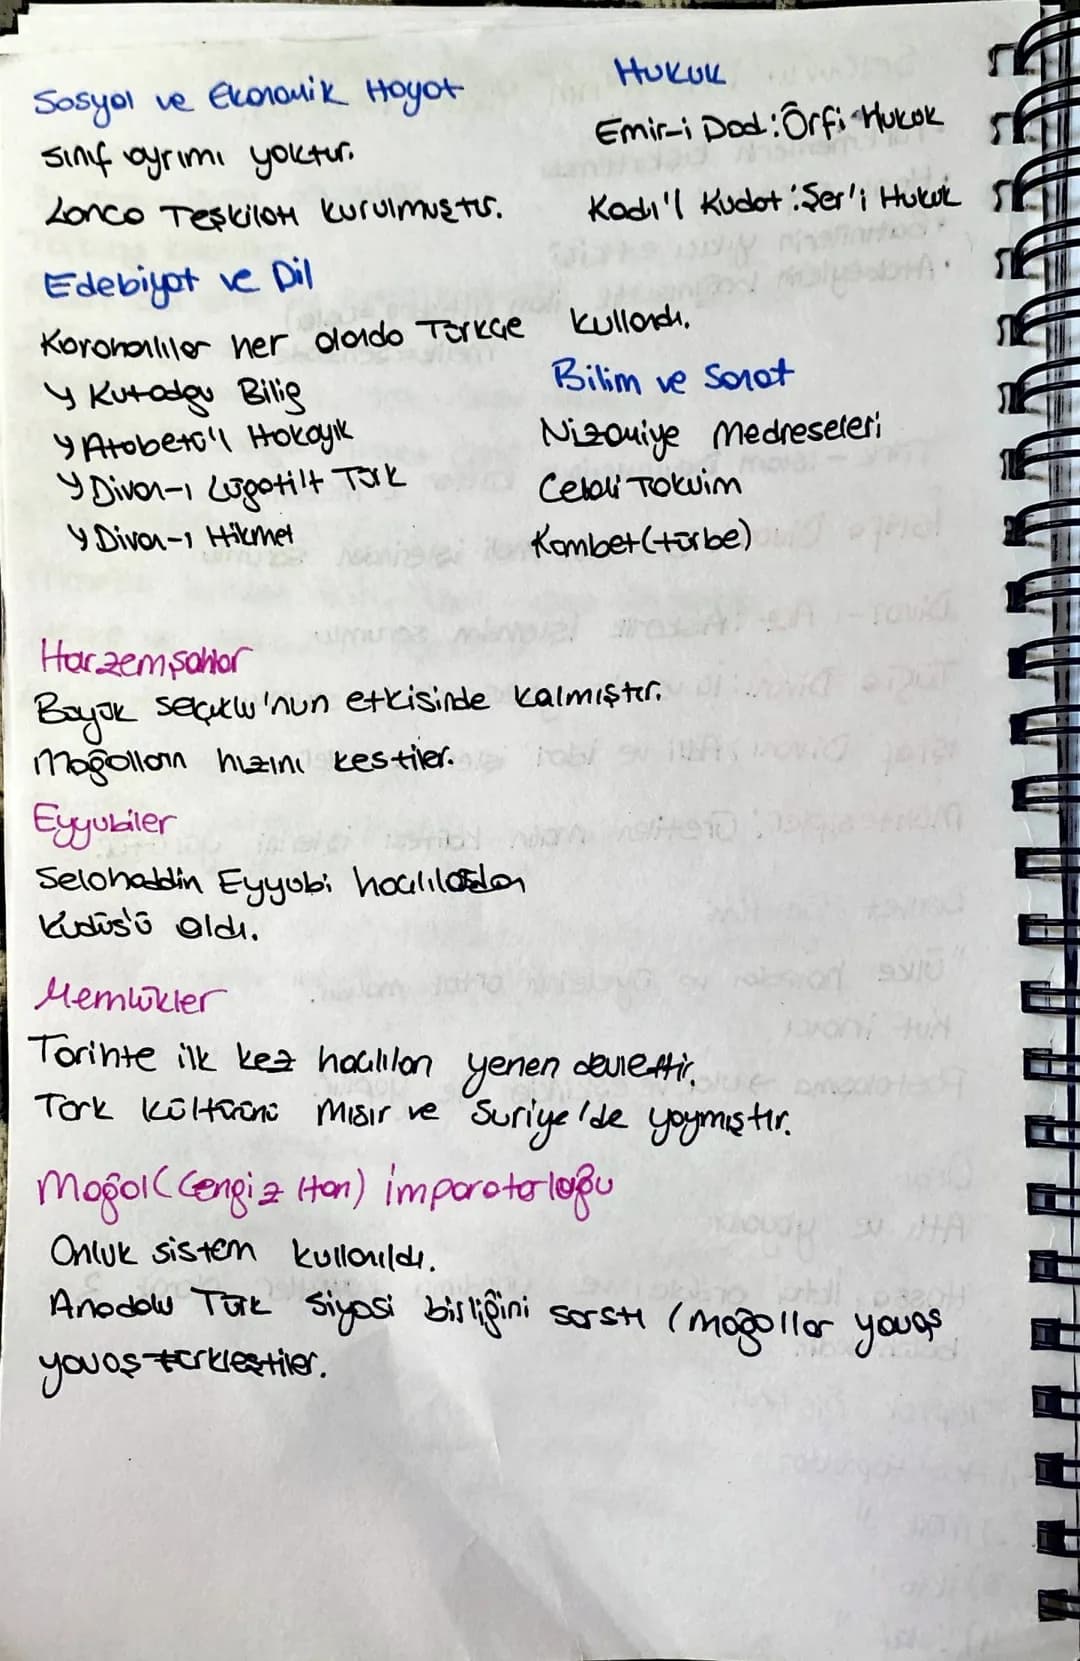 Sosyal ve Ekonomik Hayat
Sınıf ayrımı yoktur.
Lonca Teşkilatı kurulmuştur.
Hukuk
Emir-i Dad: Örfi Hukuk
Kadı'l Kudat: Şer'i Hukuk
Edebiyat ve Dil
Karahanlılar her alanda Türkçe kullandı.
Kutadgu Bilig
Atabetü'l Hakayık
Divan-ı Lügatilt Türk
Divan-ı Hikmet
Bilim ve Sanat
Nizamiye Medreseleri
Celali Takvim
Kümbet (türbe)
Harzemşahlar
Büyük Selçuklu'nun etkisinde kalmıştır.
Moğolların hızını kestiler.
Eyyubiler
Selahaddin Eyyubi haçlılardan
Kudüs'ü aldı.
Memlükler
Tarihte ilk kez haçlıları yenen devlettir.
Türk kültürünü Mısır ve Suriye'de yaymıştır.
Moğol (Cengiz Han) İmparatorluğu
Onluk sistem kullanıldı.
Anadolu Türk siyasi birliğini sarstı (Moğollar yavaş
yavaş türkleştiler.